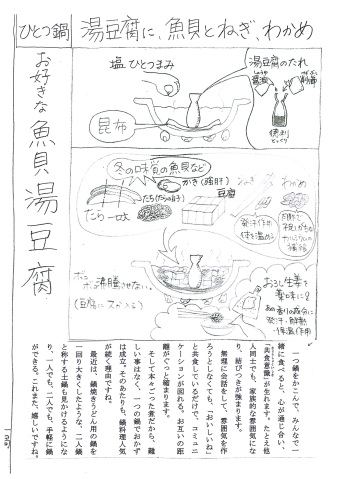 ひとつ鍋
湯豆腐に、魚貝とねぎ、わかめ
お好きな魚貝湯豆腐
塩ひとつまみ
昆布
湯豆腐のたれ
醤油
しょうゆ
削節
徳利
とっくり
冬の味覚の魚貝など
かき(牡蛎)
たら一口大
たち(たらの白子)
豆腐
ねぎ
わかめ
発汗作用
体を温める
カルシウムの
沸騰させない。
おろし生姜を
薬味に!
発汗・解熱
・保温作用
一つ鍋をかこんで、みんなで一
緒に食べると、心が通じ合い、
「共食意識」が生れます。たとえ他
人同士でも、家族的な雰囲気にな
り、結びつきが強まります。
無理に会話をして、雰囲気を作
ろうとしなくても、「おいしいね」
と共食しているだけで、コミュニ
ケーションが図れる。お互いの距
離がぐっと縮まります。
そして本々ごった煮だから、難
しい事はなく、一つの鍋でおかず
は成立。そのあたりも、鍋料理人気
が続く理由ですね。
最近は、鍋焼きうどん用の鍋を
一回り大きくしたような、二人鍋
と称する土鍋も見かけるようにな
り、一人でも、二人でも、手軽に鍋
ができる。これまた、嬉しいですね。